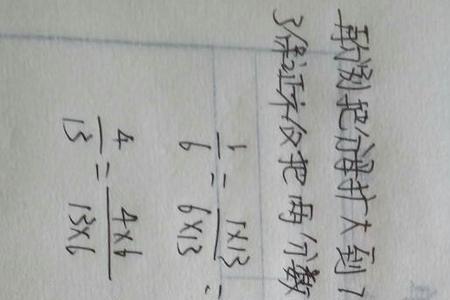 再分别把分母扩大到7
3保证不仅把两分数
1/6 = 1×13/6×13 =
4/13 = 4×6/13×6